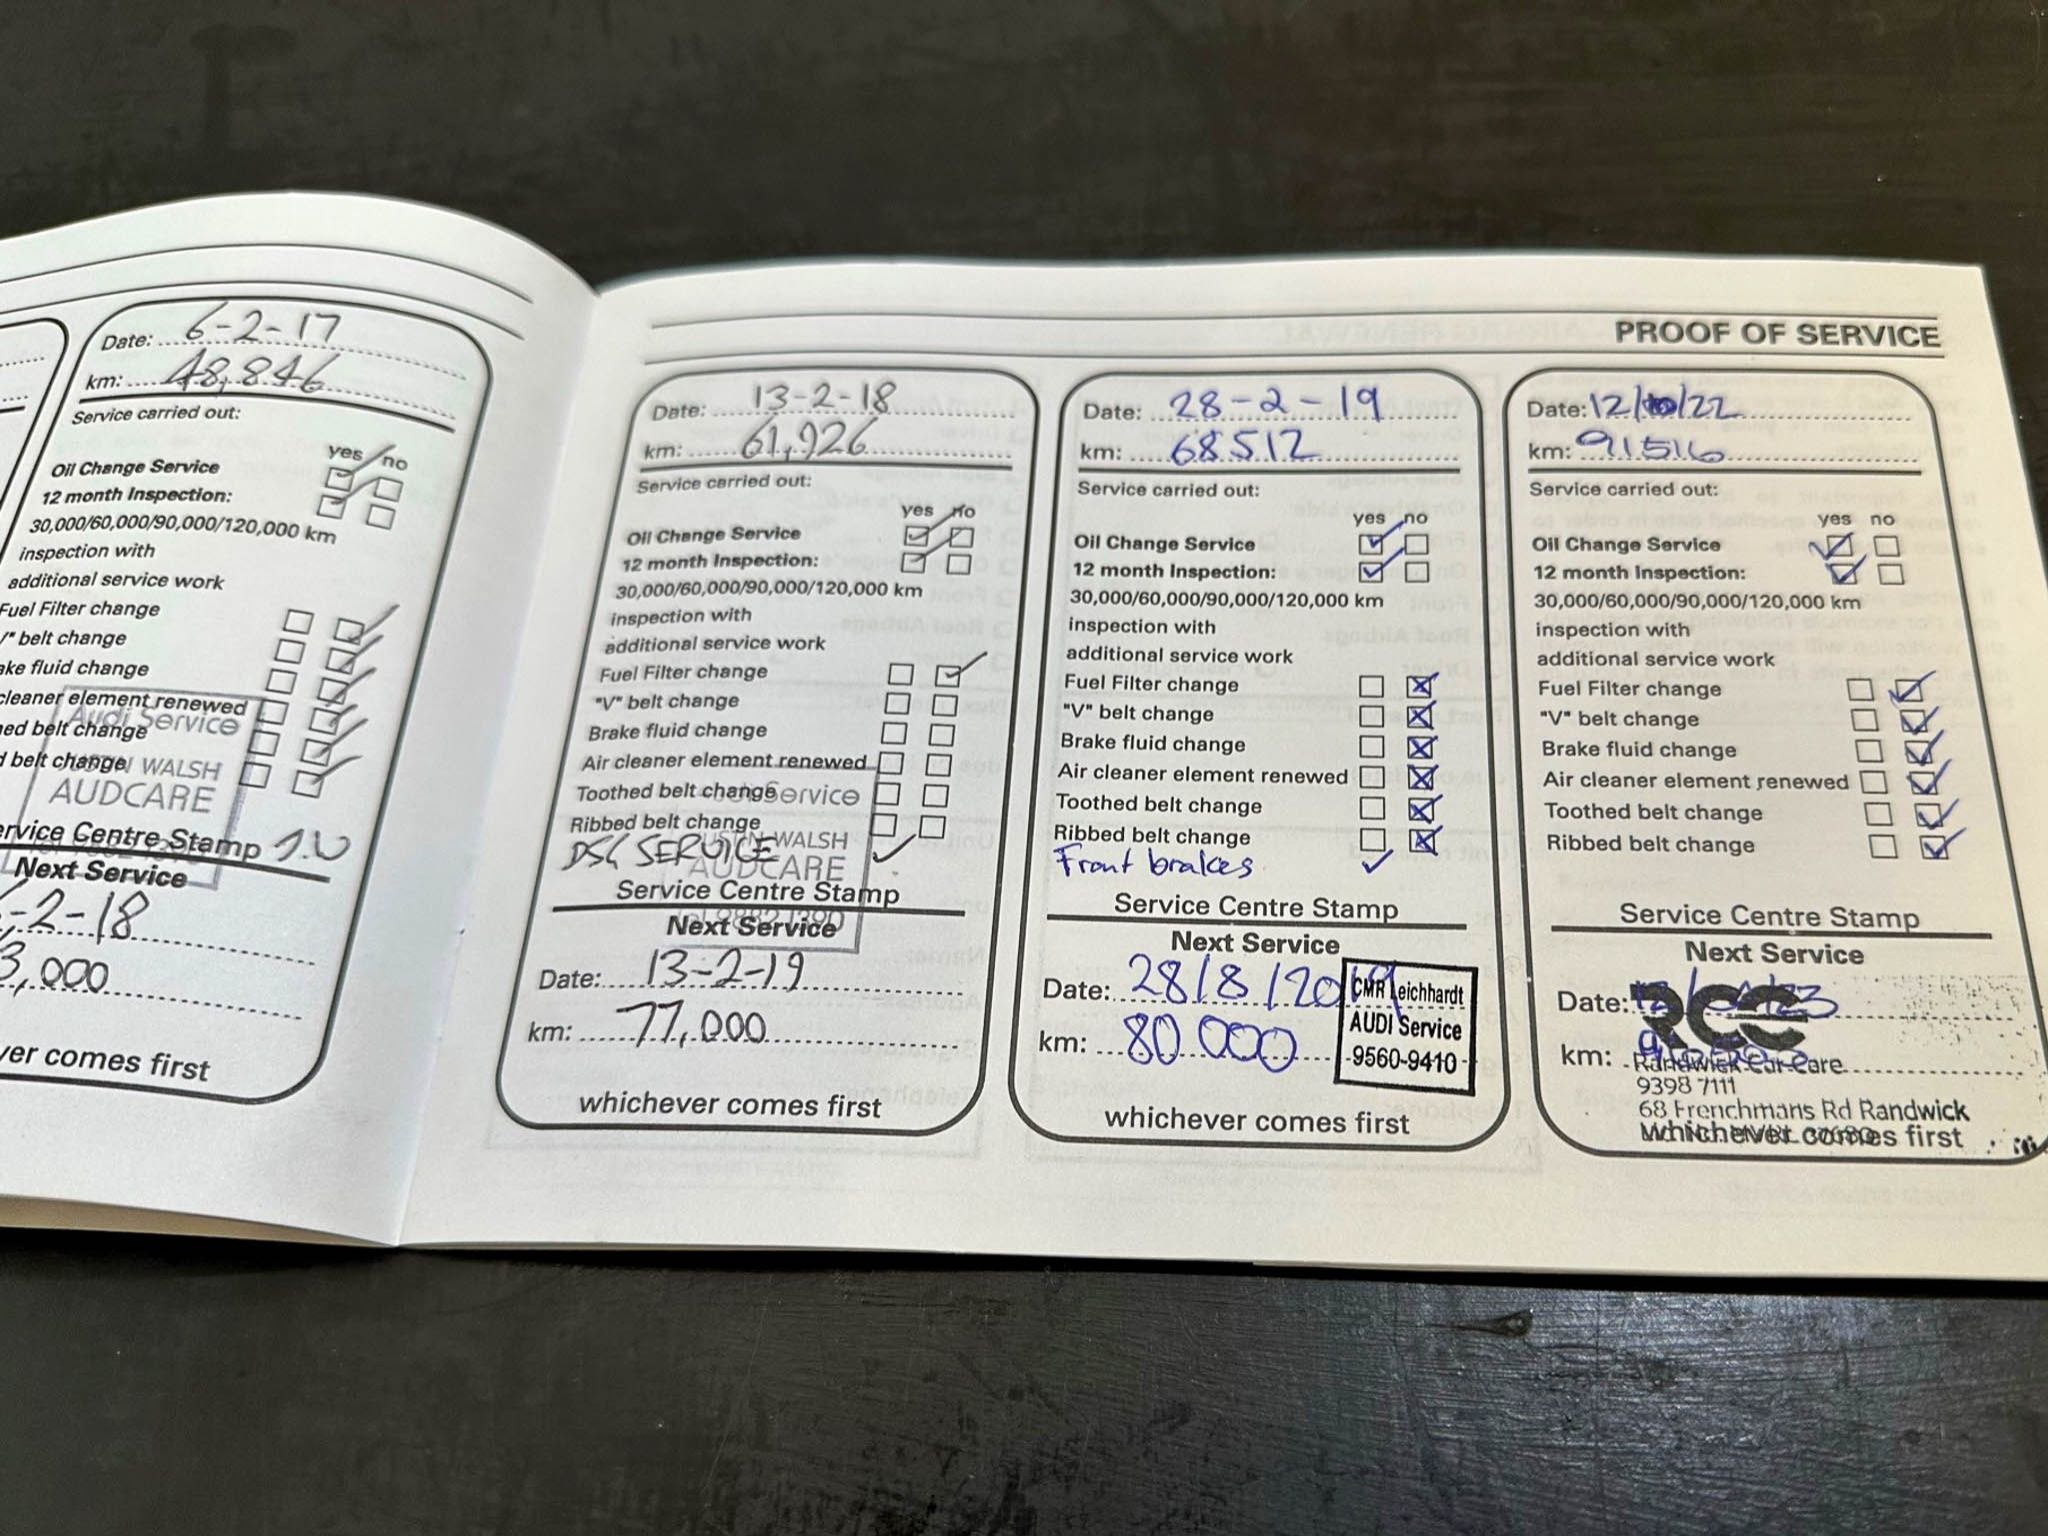 Date: 6-2-17
km: 48,846
Service carried out:
yes no
Oil Change Service
12 month Inspection:
30,000/60,000/90,000/120,000 km
inspection with
additional service work
Fuel Filter change
V" belt change
ake fluid change
cleaner element renewed
Audi Service
ed belt change
d belt change
JUSTIN WALSH
AUDCARE
ervice Centre Stamp J.W
Next Service
-2-18
3,000
ver comes first
PROOF OF SERVICE
Date: 13-2-18
km: 61,926
Service carried out:
yes no
Oil Change Service
12 month Inspection:
30,000/60,000/90,000/120,000 km
inspection with
additional service work
Fuel Filter change
"V" belt change
Brake fluid change
Air cleaner element renewed
Toothed belt change
Service
Ribbed belt change
JUSTIN WALSH
DSG SERVICE
AUDCARE
Service Centre Stamp
Tel 9882 1390
Next Service
Date: 13-2-19
km: 77,000
whichever comes first
Date: 28-2-19
km: 68512
Service carried out:
yes no
Oil Change Service
12 month Inspection:
30,000/60,000/90,000/120,000 km
inspection with
additional service work
Fuel Filter change
"V" belt change
Brake fluid change
Air cleaner element renewed
Toothed belt change
Ribbed belt change
Front brakes
Service Centre Stamp
Next Service
Date: 28/8/2019
km: 80 000
CMR Leichhardt
AUDI Service
9560-9410
whichever comes first
Date: 12/10/22
km: 91516
Service carried out:
yes no
Oil Change Service
12 month Inspection:
30,000/60,000/90,000/120,000 km
inspection with
additional service work
Fuel Filter change
"V" belt change
Brake fluid change
Air cleaner element renewed
Toothed belt change
Ribbed belt change
Service Centre Stamp
Next Service
Date:
RCC
km:
Randwick Car Care
9398 7111
68 Frenchmans Rd Randwick
whichever comes first